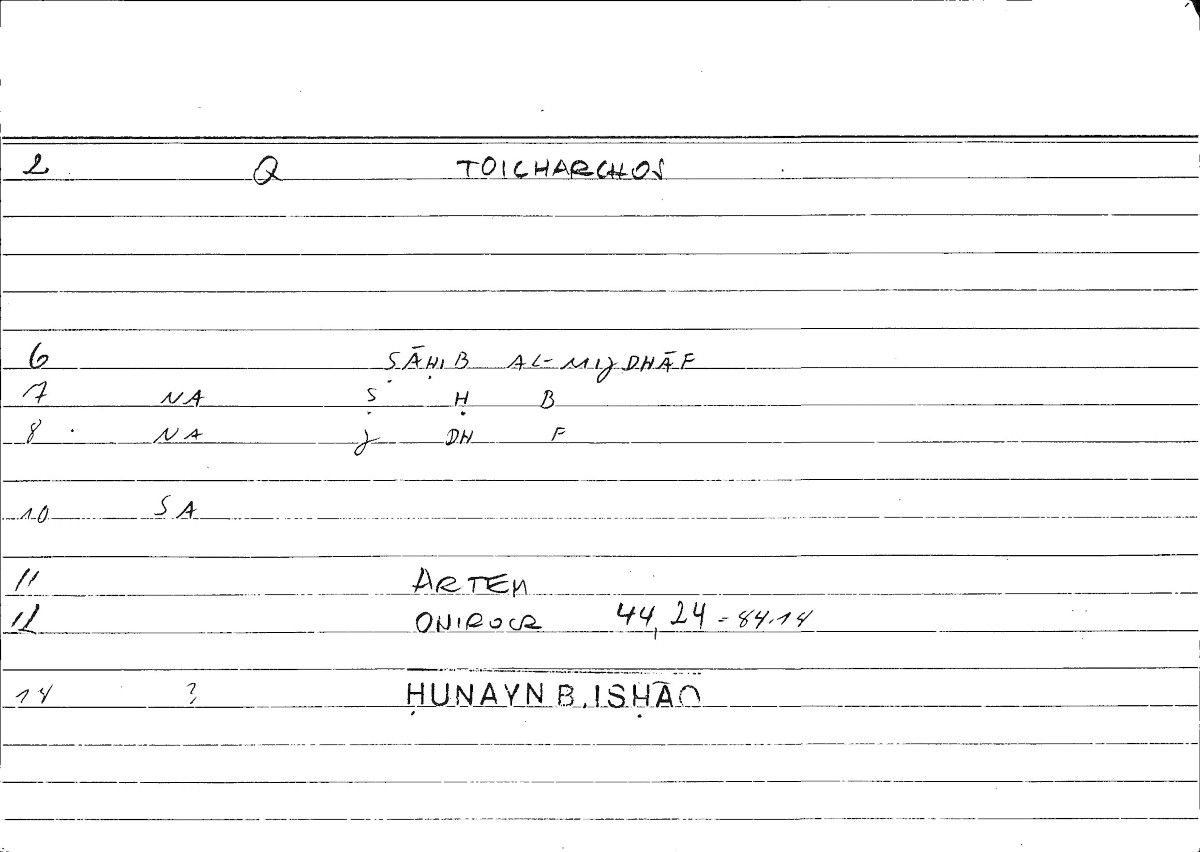 2 Q TOICHARCHOS
6 ṢĀḤIB AL-MIJDHĀF
7 NA Ṣ Ḥ B
8 NA J DH F
10 SA
11 ARTEM
12 ONIROCR 44,24 - 84.14
14 ? ḤUNAYN B. ISḤĀQ